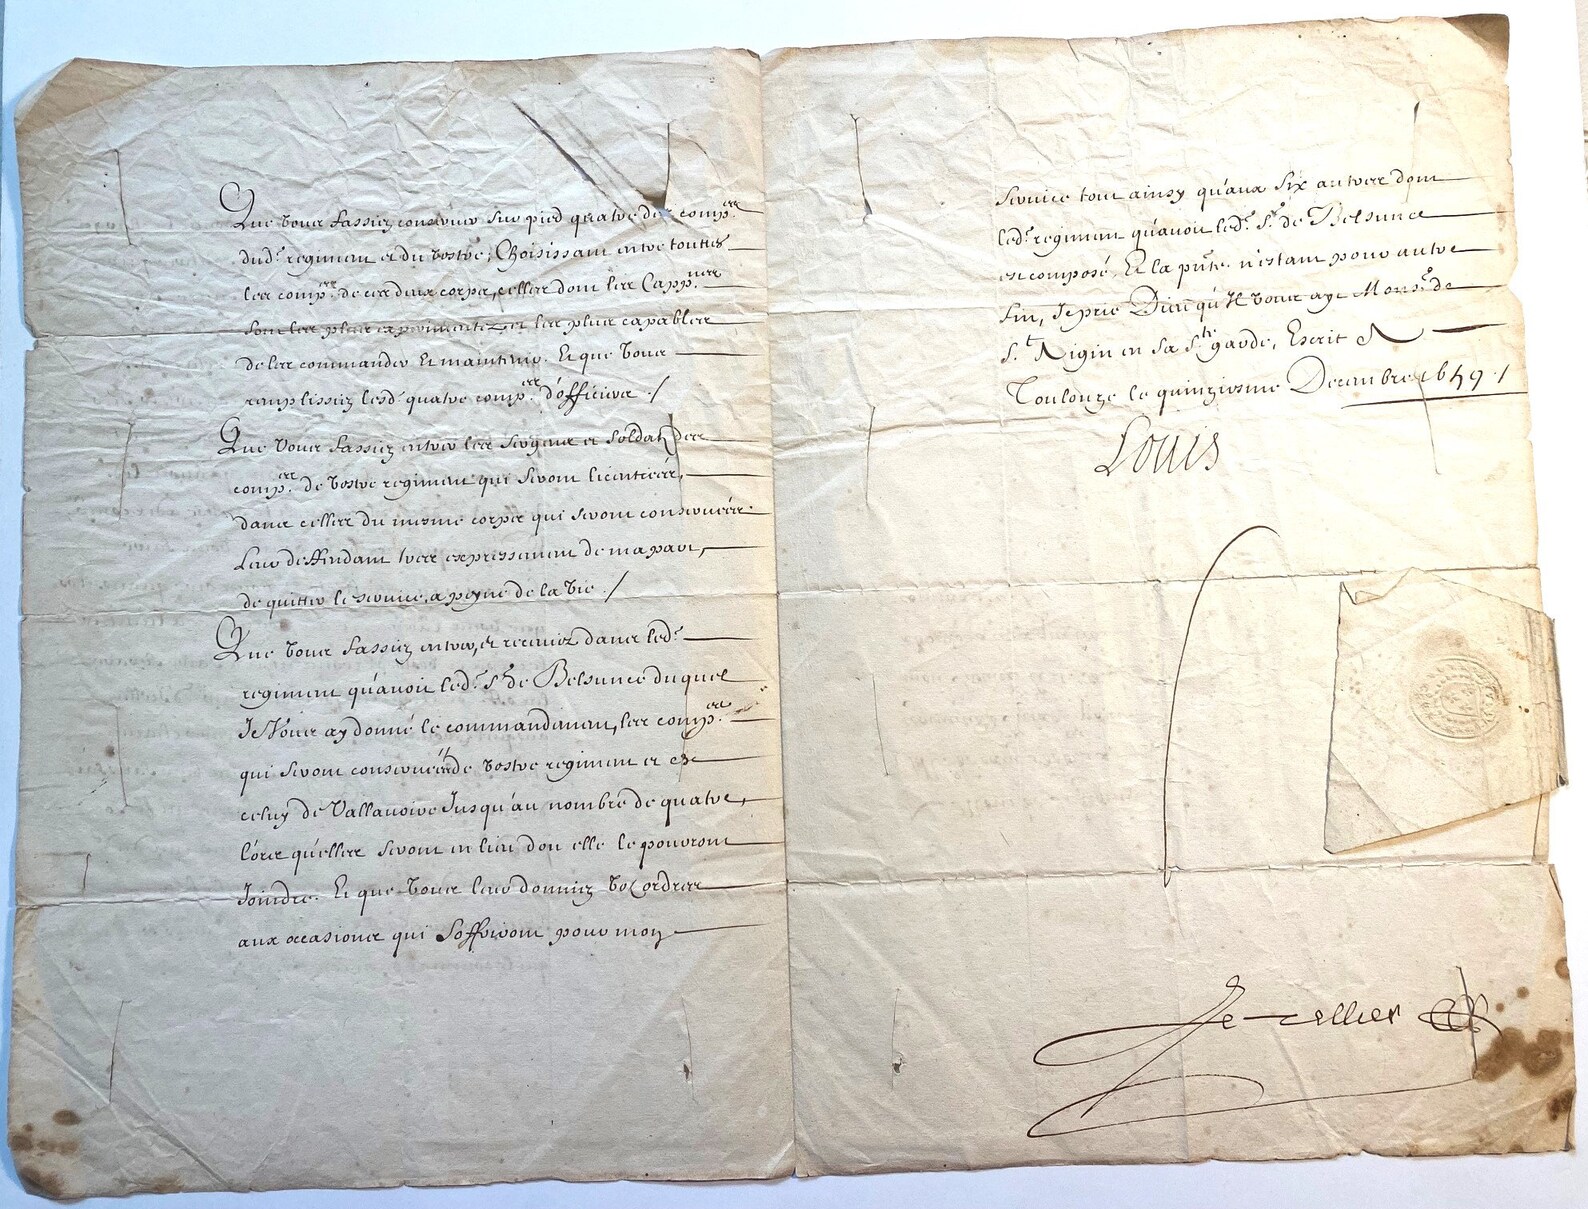 Que vous fassiez conserver sur pied quatre des comp.es
dud. regiment et du vostre, Choisissant entre toutes
les comp.es de ces deux corps, celles dont les Capp.nes
sont les plus experimentez et les plus capables
de les commander et maintenir. Et que vous
remplissiez lesd. quatre comp.es d'officiers ./
Que vous fassiez entrer les sergens et soldatz des
comp.es de vostre regiment qui seront licentiées,
dans celles du mesme corps qui seront conservées.
Leur deffendant tres expressement de ma part,
de quitter le service, a peyne de la vie ./
Que vous fassiez entrer, et receviez dans led.
regiment qu'avoit led. S.r de Belsunce duquel
Je vous ay donné le commandement, les comp.es
qui seront conservées de vostre regiment et de
celuy de Vallavoire Jusqu'au nombre de quatre,
lors qu'elles seront en lieu d'ou elle le pourront
Joindre. Et que vous leur donniez vos ordres
aux occasions qui s'offriront pour mon
service tout ainsy qu'aux six autres dont
led. regiment qu'avoit led. S.r de Belsunce
est composé. Et la pn̄te n'estant pour autre
fin, Je prie Dieu qu'Il vous aye Mons.r de
S.t en sa S.te garde, Escrit A
Toulouze le quinziesme Decembre 1659 ./
Louis
Le Tellier